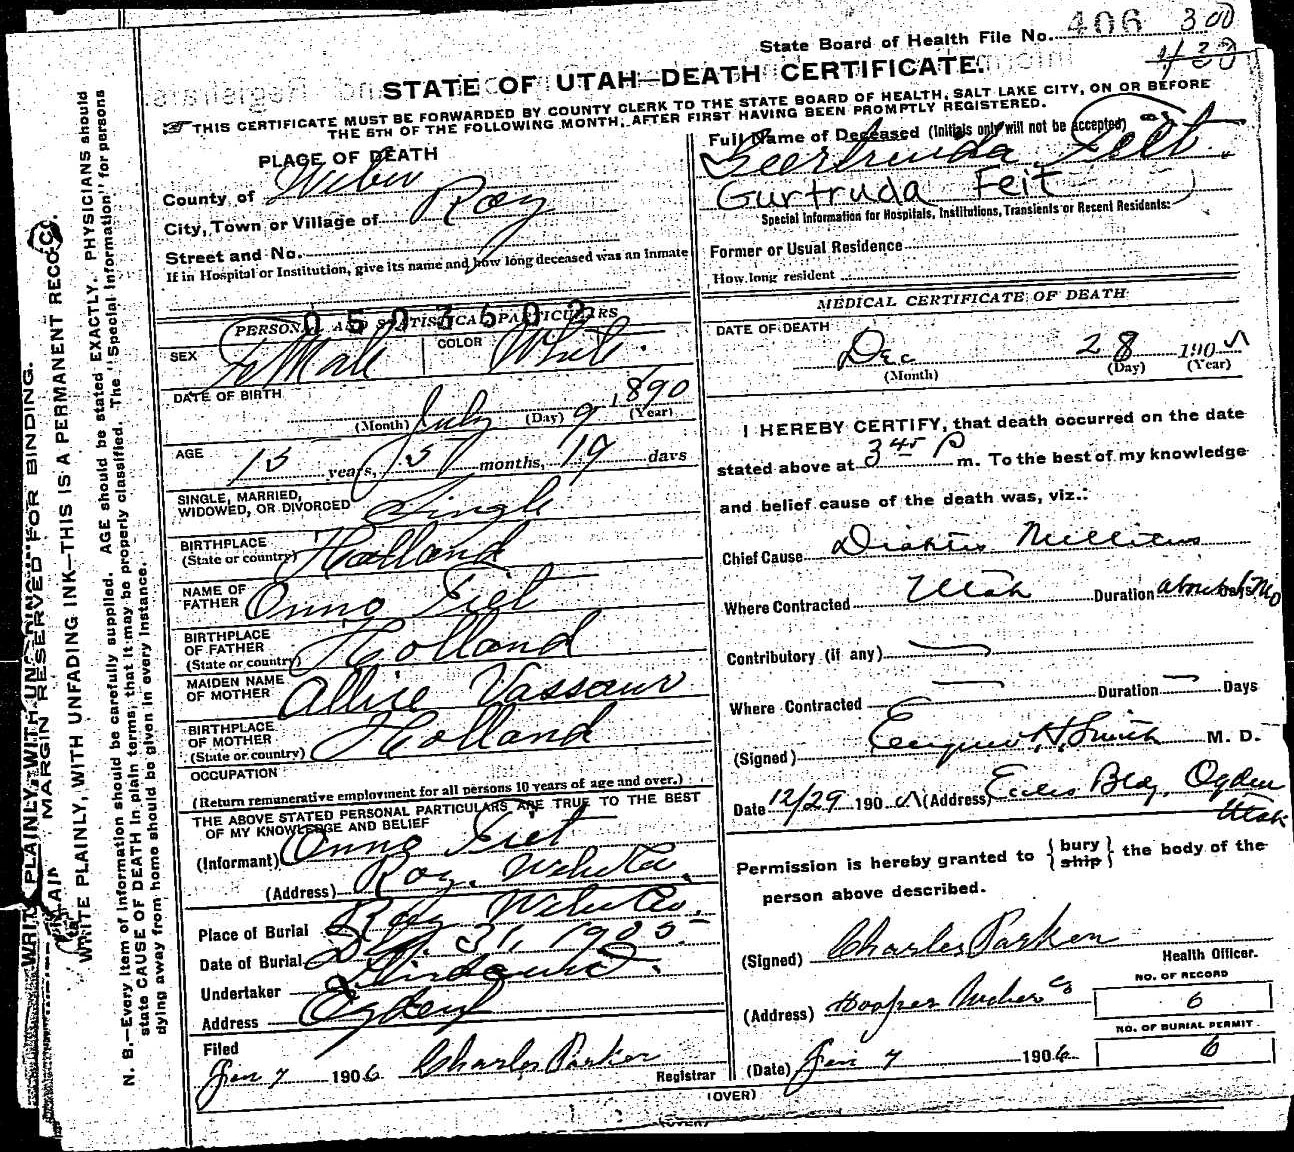 State Board of Health File No. 406 300
STATE OF UTAH—DEATH CERTIFICATE.
THIS CERTIFICATE MUST BE FORWARDED BY COUNTY CLERK TO THE STATE BOARD OF HEALTH, SALT LAKE CITY, ON OR BEFORE
THE 5TH OF THE FOLLOWING MONTH, AFTER FIRST HAVING BEEN PROMPTLY REGISTERED.
PLACE OF DEATH
County of Weber
City, Town or Village of Roy
Street and No.
If in Hospital or Institution, give its name and how long deceased was an inmate
0503502
PERSONAL AND STATISTICAL PARTICULARS
SEX Fe Male COLOR White.
DATE OF BIRTH
July 9 1890
(Month) (Day) (Year)
AGE
15 years, 5 months, 19 days
SINGLE, MARRIED,
WIDOWED, OR DIVORCED Single
BIRTHPLACE
(State or country) Holland
NAME OF
FATHER Onno Fiet
BIRTHPLACE
OF FATHER
(State or country) Holland
MAIDEN NAME
OF MOTHER Allice Vassaur
BIRTHPLACE
OF MOTHER
(State or country) Holland
OCCUPATION
(Return remunerative employment for all persons 10 years of age and over.)
THE ABOVE STATED PERSONAL PARTICULARS ARE TRUE TO THE BEST
OF MY KNOWLEDGE AND BELIEF
(Informant) Onno Fiet
(Address) Roy. Weber Co.
Place of Burial Roy Weber Co.
Date of Burial Dec. 31, 1905
Undertaker
Address Ogden
Filed
Jan 7 1906 Charles Parker
Registrar
Full Name of Deceased (Initials only will not be accepted)
Geertruida Felt.
Gurtruda Feit
Special Information for Hospitals, Institutions, Transients or Recent Residents:
Former or Usual Residence
How long resident
MEDICAL CERTIFICATE OF DEATH
DATE OF DEATH
Dec 28 1905
(Month) (Day) (Year)
I HEREBY CERTIFY, that death occurred on the date
stated above at 3 45 P m. To the best of my knowledge
and belief cause of the death was, viz.:
Chief Cause Diabtis Mellitus
Where Contracted Utah Duration about 4 Mo
Contributory (if any)
Where Contracted Duration Days
(Signed) Eugene H. Smith M. D.
Date 12/29 1905 (Address) Eccles Bldg. Ogden
Utah
Permission is hereby granted to { bury ship } the body of the
person above described.
(Signed) Charles Parker
Health Officer.
(Address) Hooper Weber Co
NO. OF RECORD
6
NO. OF BURIAL PERMIT
6
(Date) Jan 7 1906
(OVER)
MARGIN RESERVED FOR BINDING.
WRITE PLAINLY, WITH UNFADING INK—THIS IS A PERMANENT RECORD.
N. B.—Every item of information should be carefully supplied. AGE should be stated EXACTLY. PHYSICIANS should
state CAUSE OF DEATH in plain terms, that it may be properly classified. The "Special Information" for persons
dying away from home should be given in every instance.